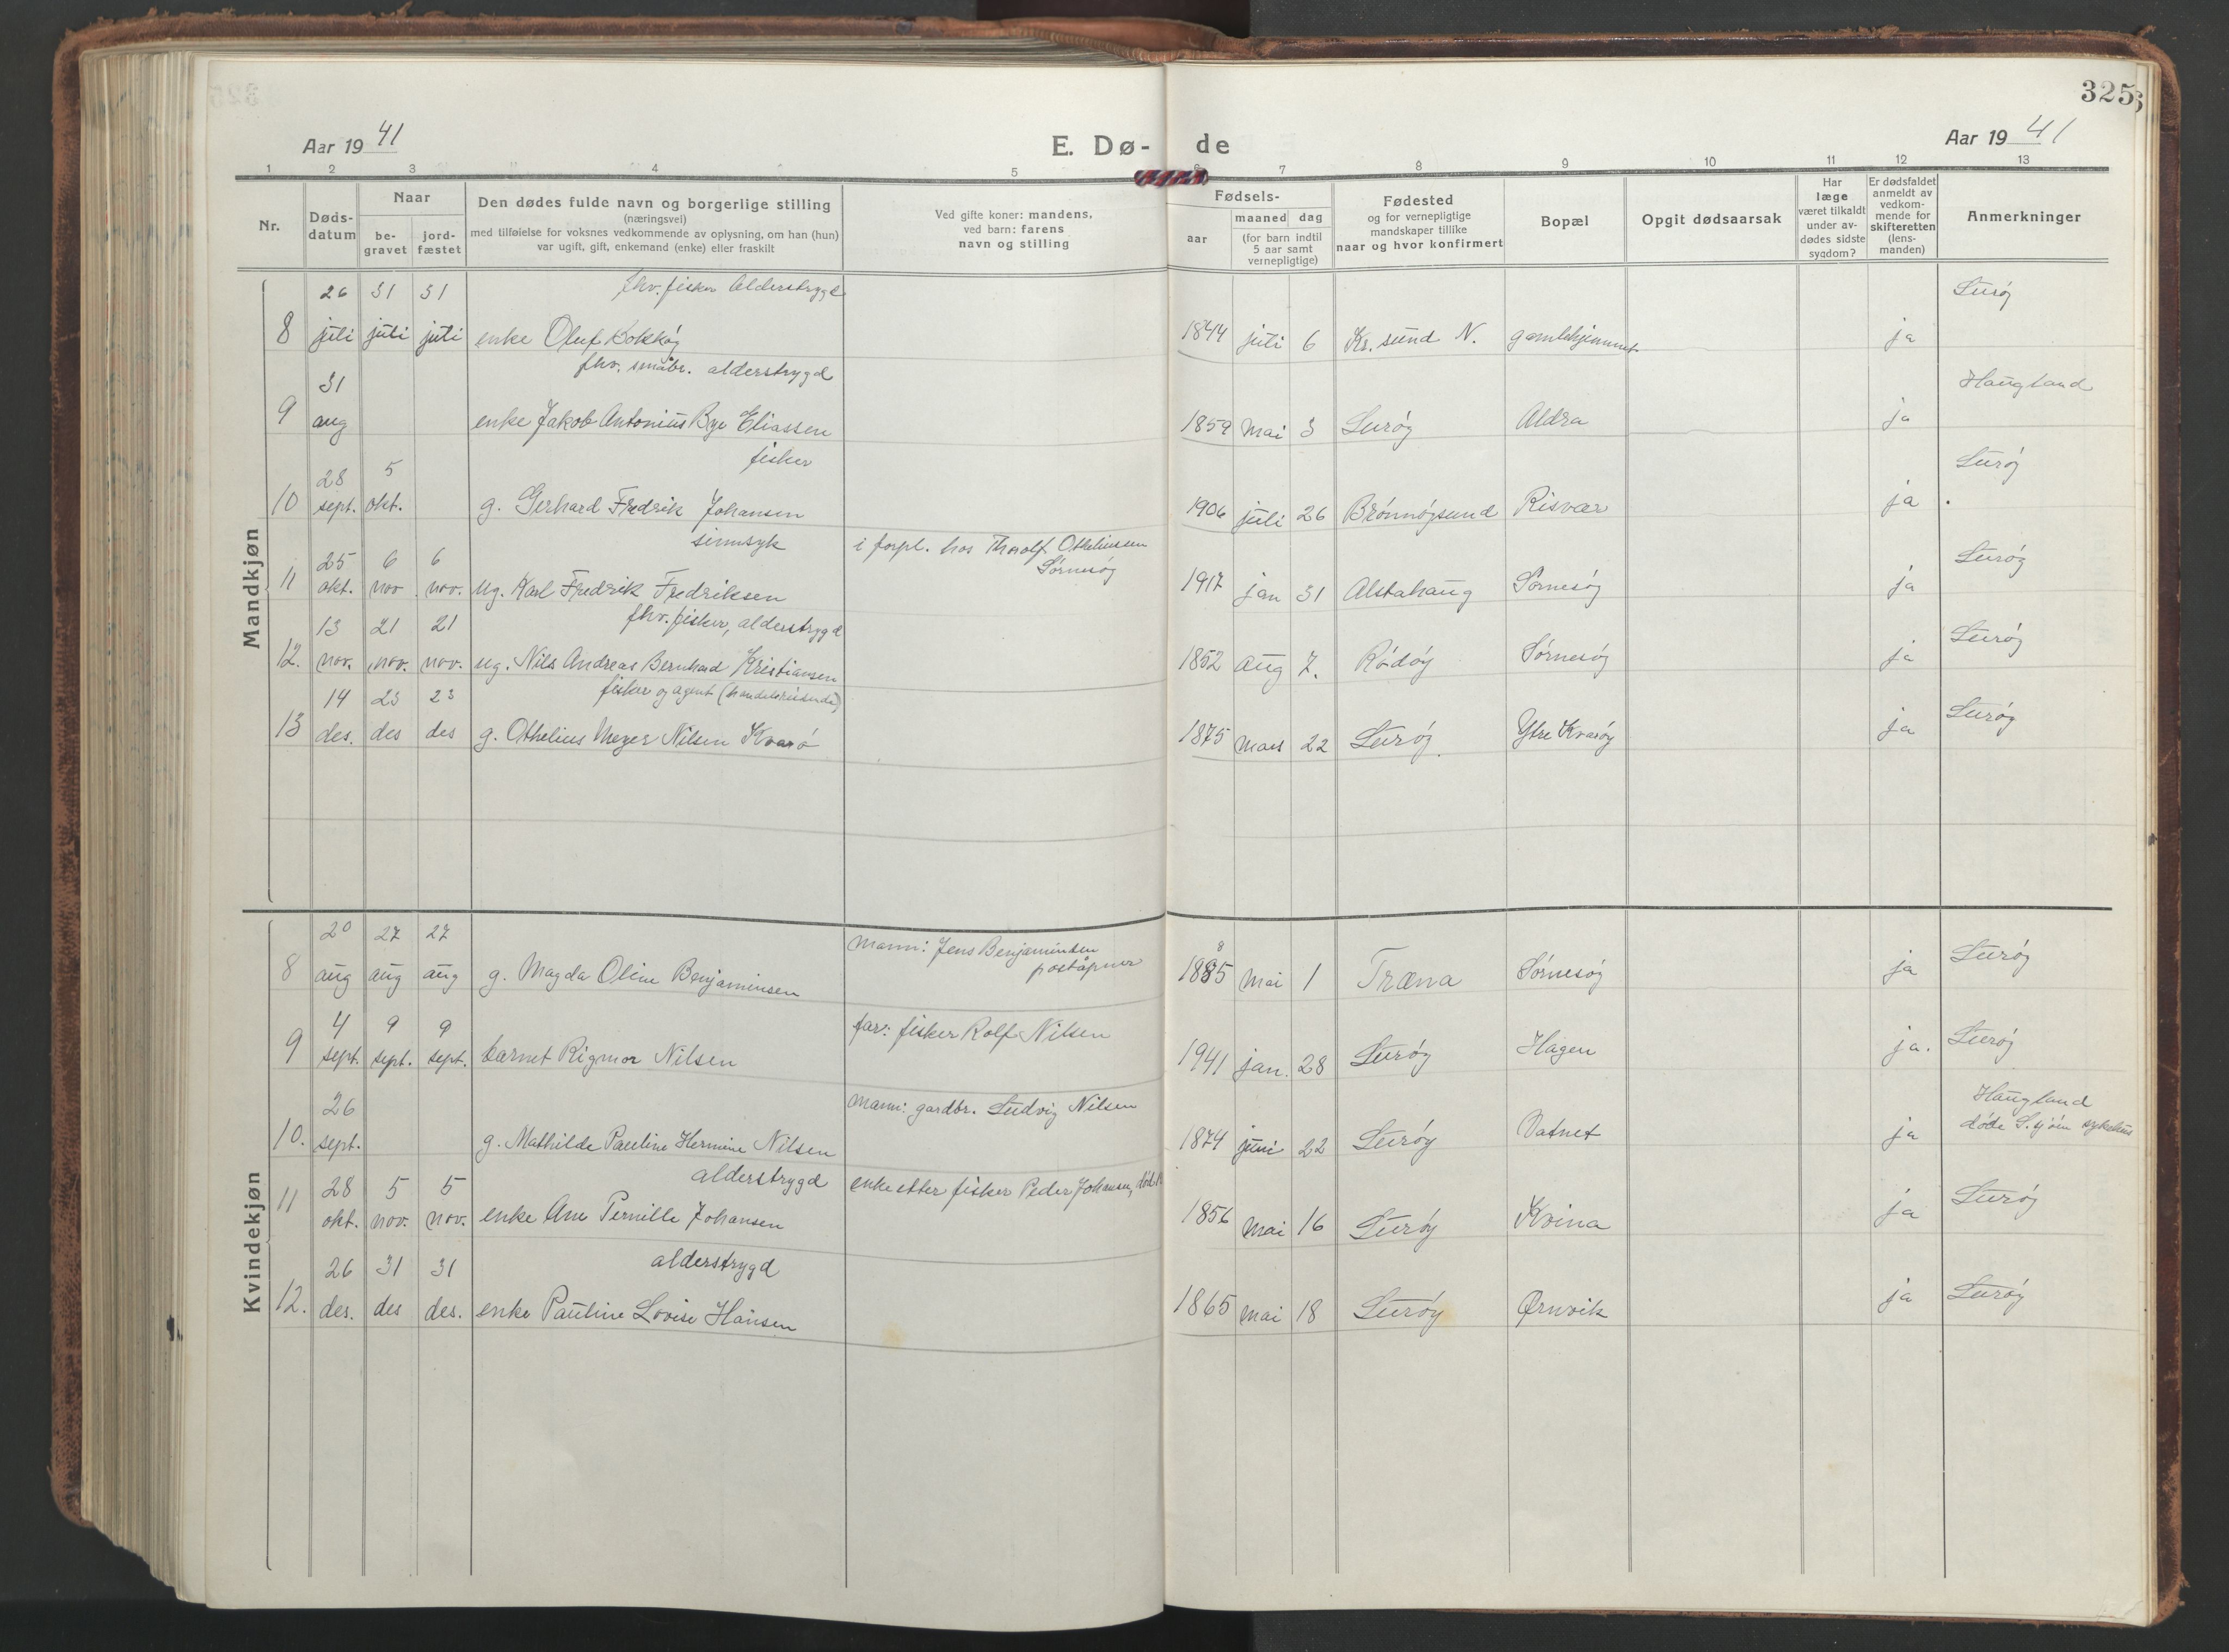 325
Aar 1941
E. Dø- de
Aar 1941
1 2 3 4 5 6 7 8 9 10 11 12 13
Nr.
Døds-
datum
Naar
be-
gravet
jord-
fæstet
Den dødes fulde navn og borgerlige stilling
(næringsvei)
med tilføielse for voksnes vedkommende av oplysning, om han (hun)
var ugift, gift, enkemand (enke) eller fraskilt
Ved gifte koner: mandens,
ved barn: farens
navn og stilling
Fødsels-
aar
maaned dag
(for barn indtil
5 aar samt
vernepligtige)
Fødested
og for vernepligtige
mandskaper tillike
naar og hvor konfirmert
Bopæl
Opgit dødsaarsak
Har
læge
været tilkaldt
under av-
dødes sidste
sygdom?
Er dødsfaldet
anmeldt av
vedkom-
mende for
skifteretten
(lens-
manden)
Anmerkninger
Mandkjøn
26 31 31 fhv. fisker Alderstrygd Lurøy
8 juli juli juli enke Oluf Bokkøy 1844 juli 6 Kr. sund N. gamlehjemmet ja
31 fhv. småbr. alderstrygd Haugland
9 aug enke Jakob Antonius Bye Eliassen 1859 Mai 3 Lurøy Aldra ja
28 5 fisker Lurøy
10 sept. okt. g. Gerhard Fredrik Johansen 1906 juli 26 Brønnøysund Risvær ja
25 6 6 sinnsyk i forpl. hos Thoralf Otheliussen Lurøy
Sørnesøy
11 okt. nov. nov. ug. Karl Fredrik Fredriksen 1917 jan 31 Alstahaug Sørnesøy ja
13 21 21 fhv. fisker, alderstrygd Lurøy
12. nov. nov. nov. ug. Nils Andreas Bernhard Kristiansen 1852 Aug 7. Rødøy Sørnesøy ja
14 23 23 fisker og agent (handelsreisende) Lurøy
13 des. des des g. Othelius Meyer Nilsen Kvarø 1875 Mars 22 Lurøy Ytre Kvarøy ja
Kvindekjøn
20 27 27 Mann: Jens Benjaminsen 8 Lurøy
poståpner
8 aug aug aug g. Magda Oline Benjaminsen 1885 Mai 1 Træna Sørnesøy ja
4 9 9 far: fisker Rolf Nilsen Lurøy
9 sept. sept. sept. barnet Rigmor Nilsen 1941 jan. 28 Lurøy Hagen ja.
26 Mann: gardbr. Ludvig Nilsen Haugland
døde S.sjøen sykehus
10. sept. g. Mathilde Pauline Hermine Nilsen 1874 juni 22 Lurøy Vatnet ja
28 5 5 alderstrygd enke etter fisker Peder Johansen, Lurøy
11 okt. nov. nov. enke Ane Pernille Johansen 1856 Mai 16 Lurøy Kvina ja
26 31 31 alderstrygd Lurøy
12. des. des des. enke Pauline Lovise Hansen 1865 Mai 18 Lurøy Ørnvik ja